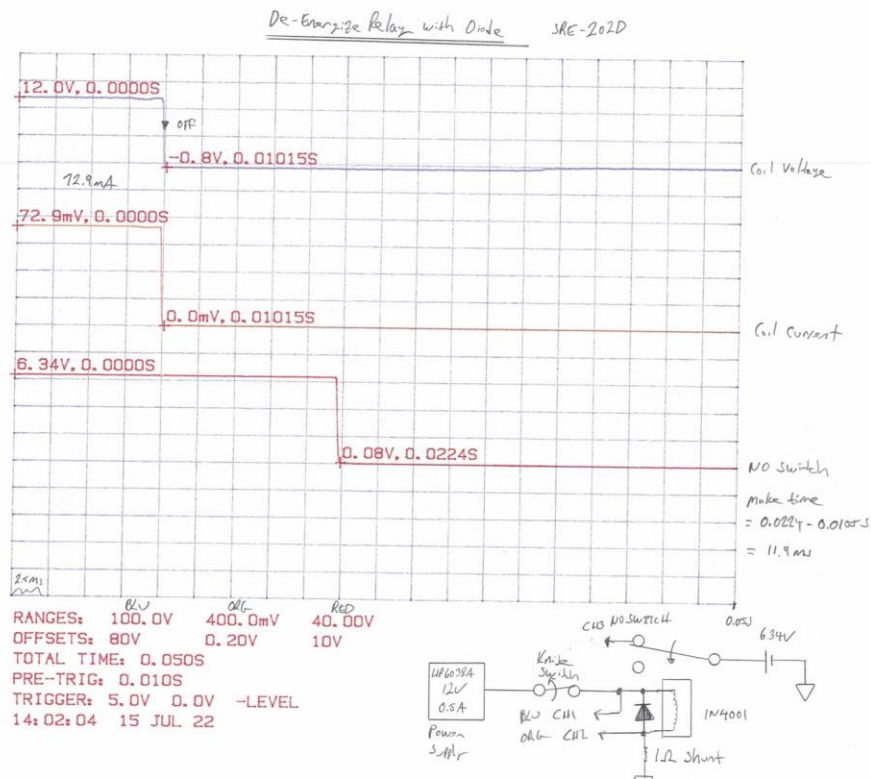 De-Energize Relay with Diode SRE-202D
12.0V, 0.0000S
OFF
-0.8V, 0.01015S
Coil Voltage
72.9mA
72.9mV, 0.0000S
0.0mV, 0.01015S
Coil Current
6.34V, 0.0000S
0.08V, 0.0224S
NO Switch
make time
= 0.0224 - 0.0105S
= 11.9 ms
2.5ms
BLU ORG RED
0.05s
RANGES: 100.0V 400.0mV 40.00V
OFFSETS: 80V 0.20V 10V
TOTAL TIME: 0.050S
PRE-TRIG: 0.010S
TRIGGER: 5.0V 0.0V -LEVEL
14:02:04 15 JUL 22
CH3 NO SWITCH
6.34V
Knife
Switch
HP6038A
12V
0.5A
Power
Supply
BLU CH1
ORG CH2
1N4001
1Ω Shunt